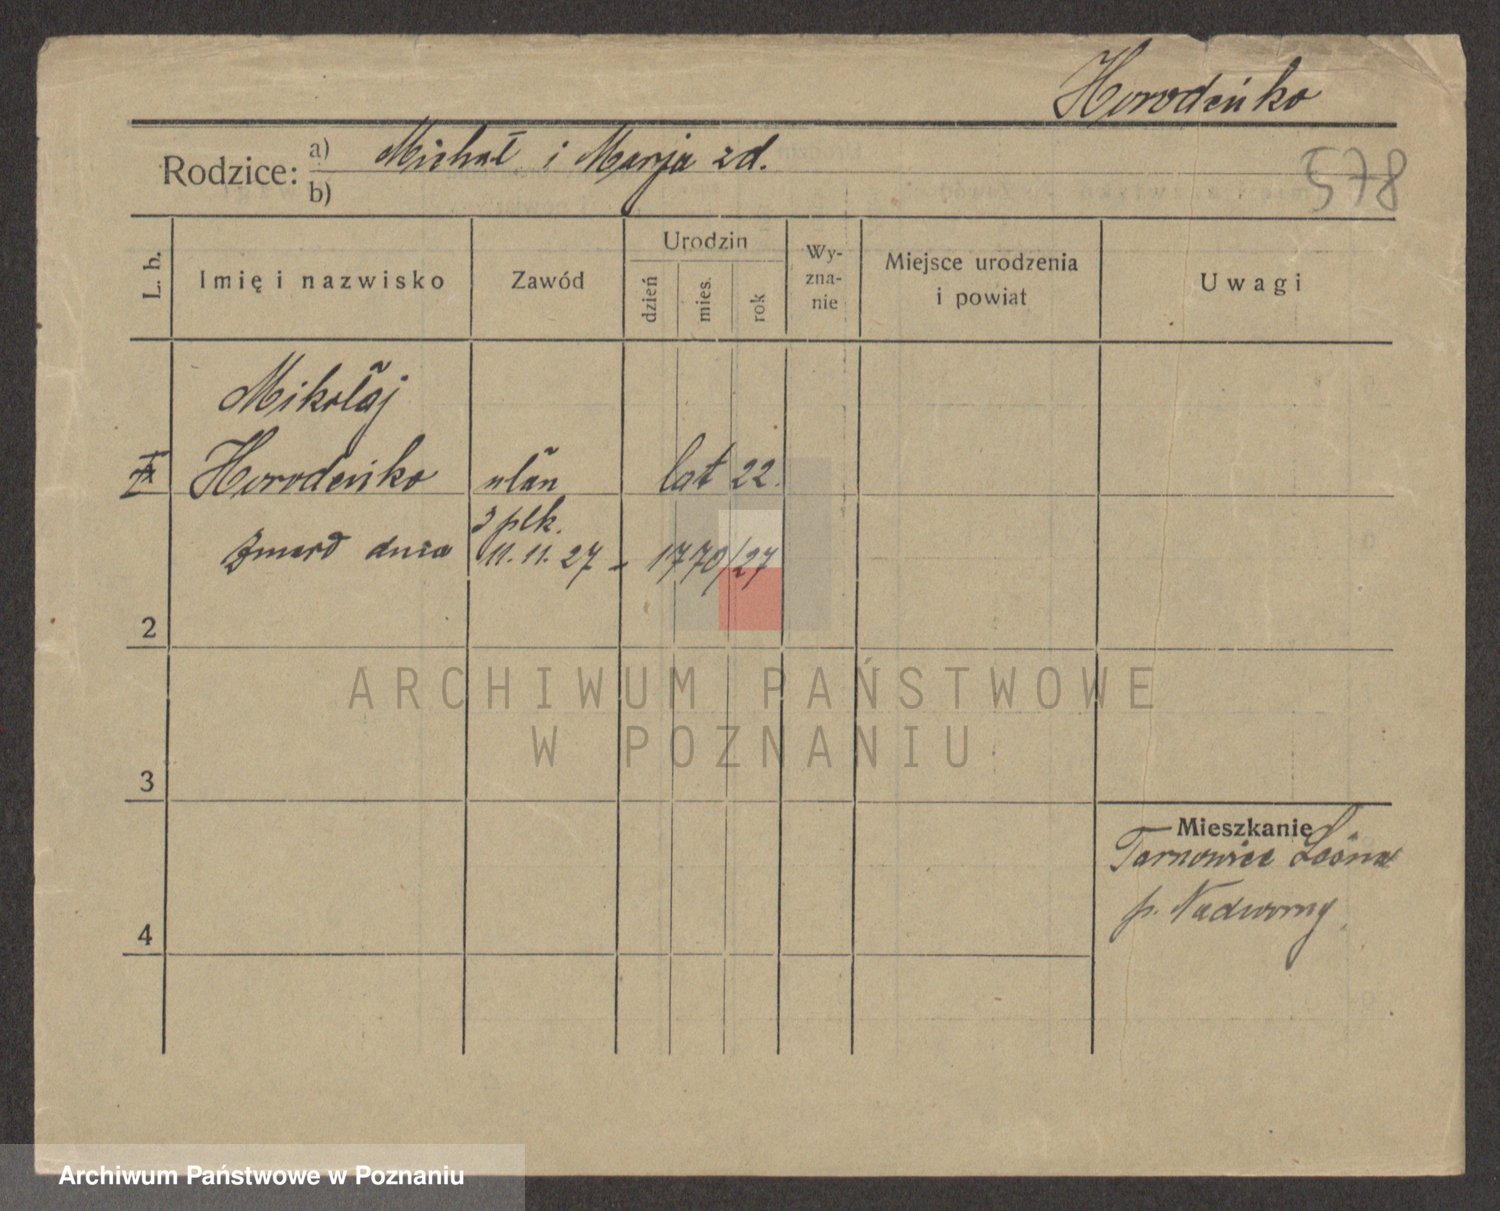 Horodeńko
Rodzice: a) Michał i Marja zd.
b)
578
L. b.
Imię i nazwisko
Zawód
Urodzin
dzień
mies.
rok
Wy-
zna-
nie
Miejsce urodzenia
i powiat
Uwagi
Mikołaj
Horodeńko ułan lat 22.
3 plk.
Zmarł dnia 11.11.27 - 1770/27
2
3
4
Mieszkanie
Tarnowice Leśna
p. Nadworny
ARCHIWUM PAŃSTWOWE
W POZNANIU
Archiwum Państwowe w Poznaniu